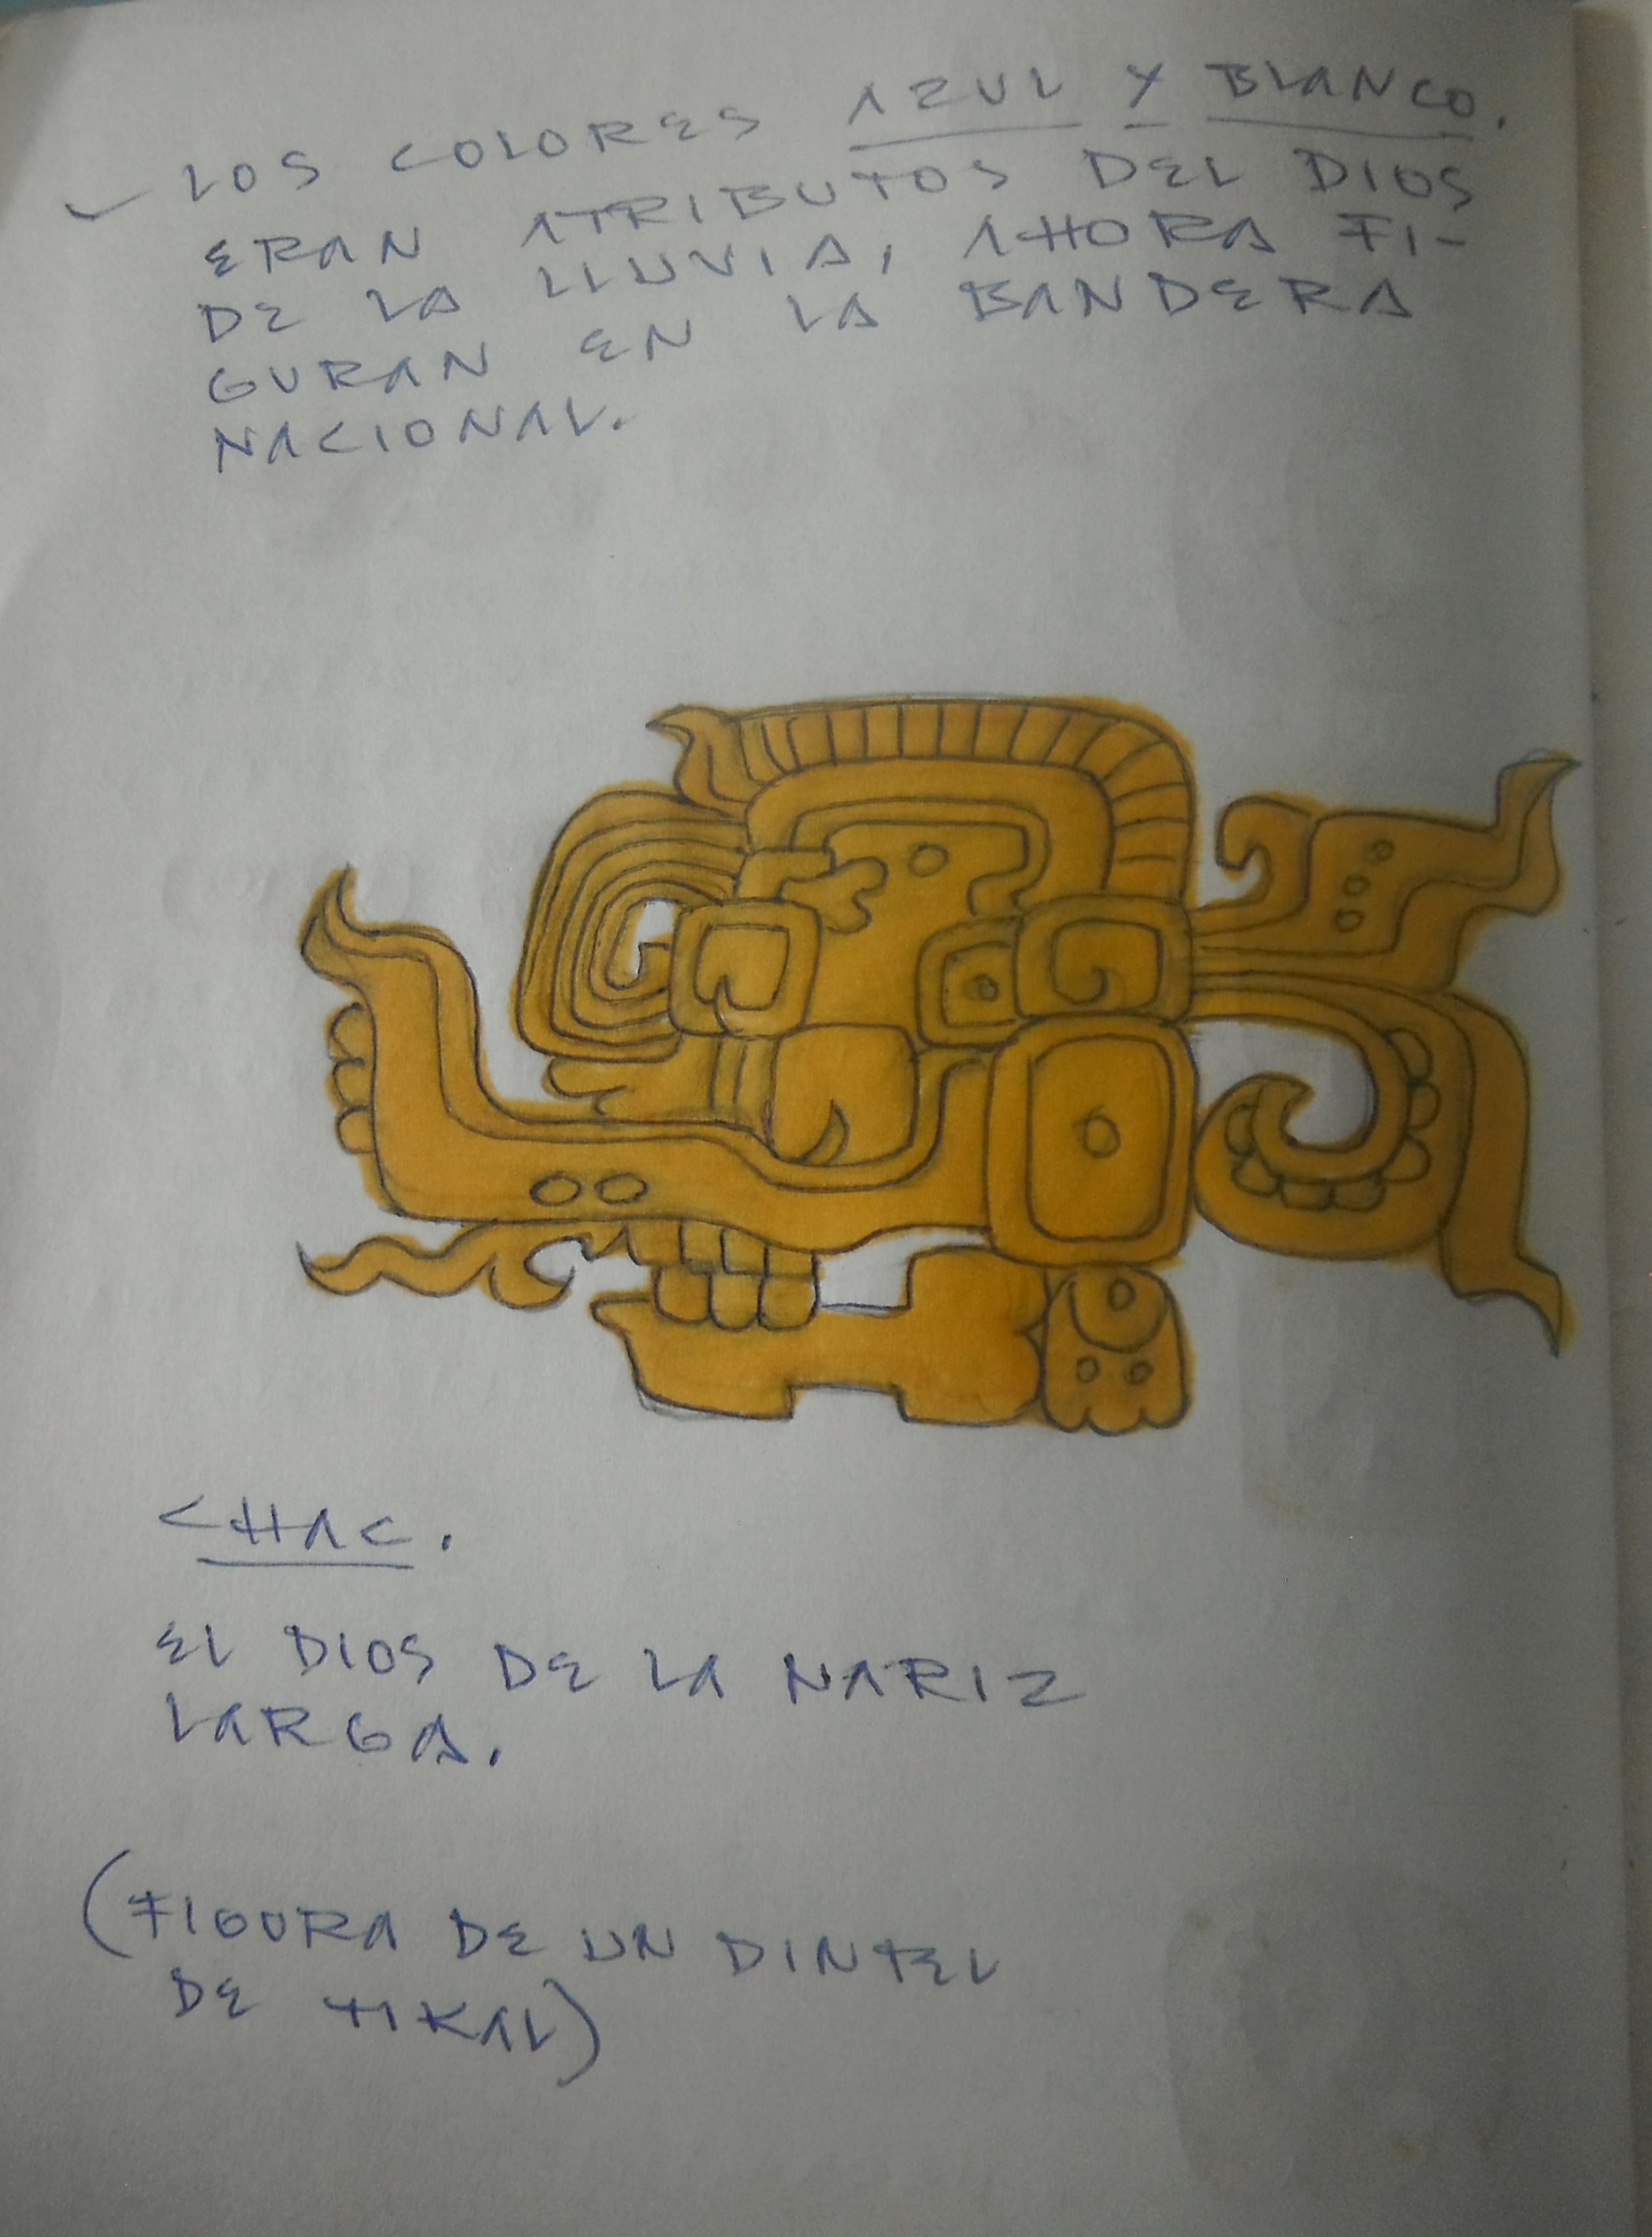 ✓ LOS COLORES AZUL Y BLANCO.
ERAN ATRIBUTOS DEL DIOS
DE LA LLUVIA, AHORA FI-
GURAN EN LA BANDERA
NACIONAL.
CHAC.
EL DIOS DE LA NARIZ
LARGA.
(FIGURA DE UN DINTEL
DE TIKAL)